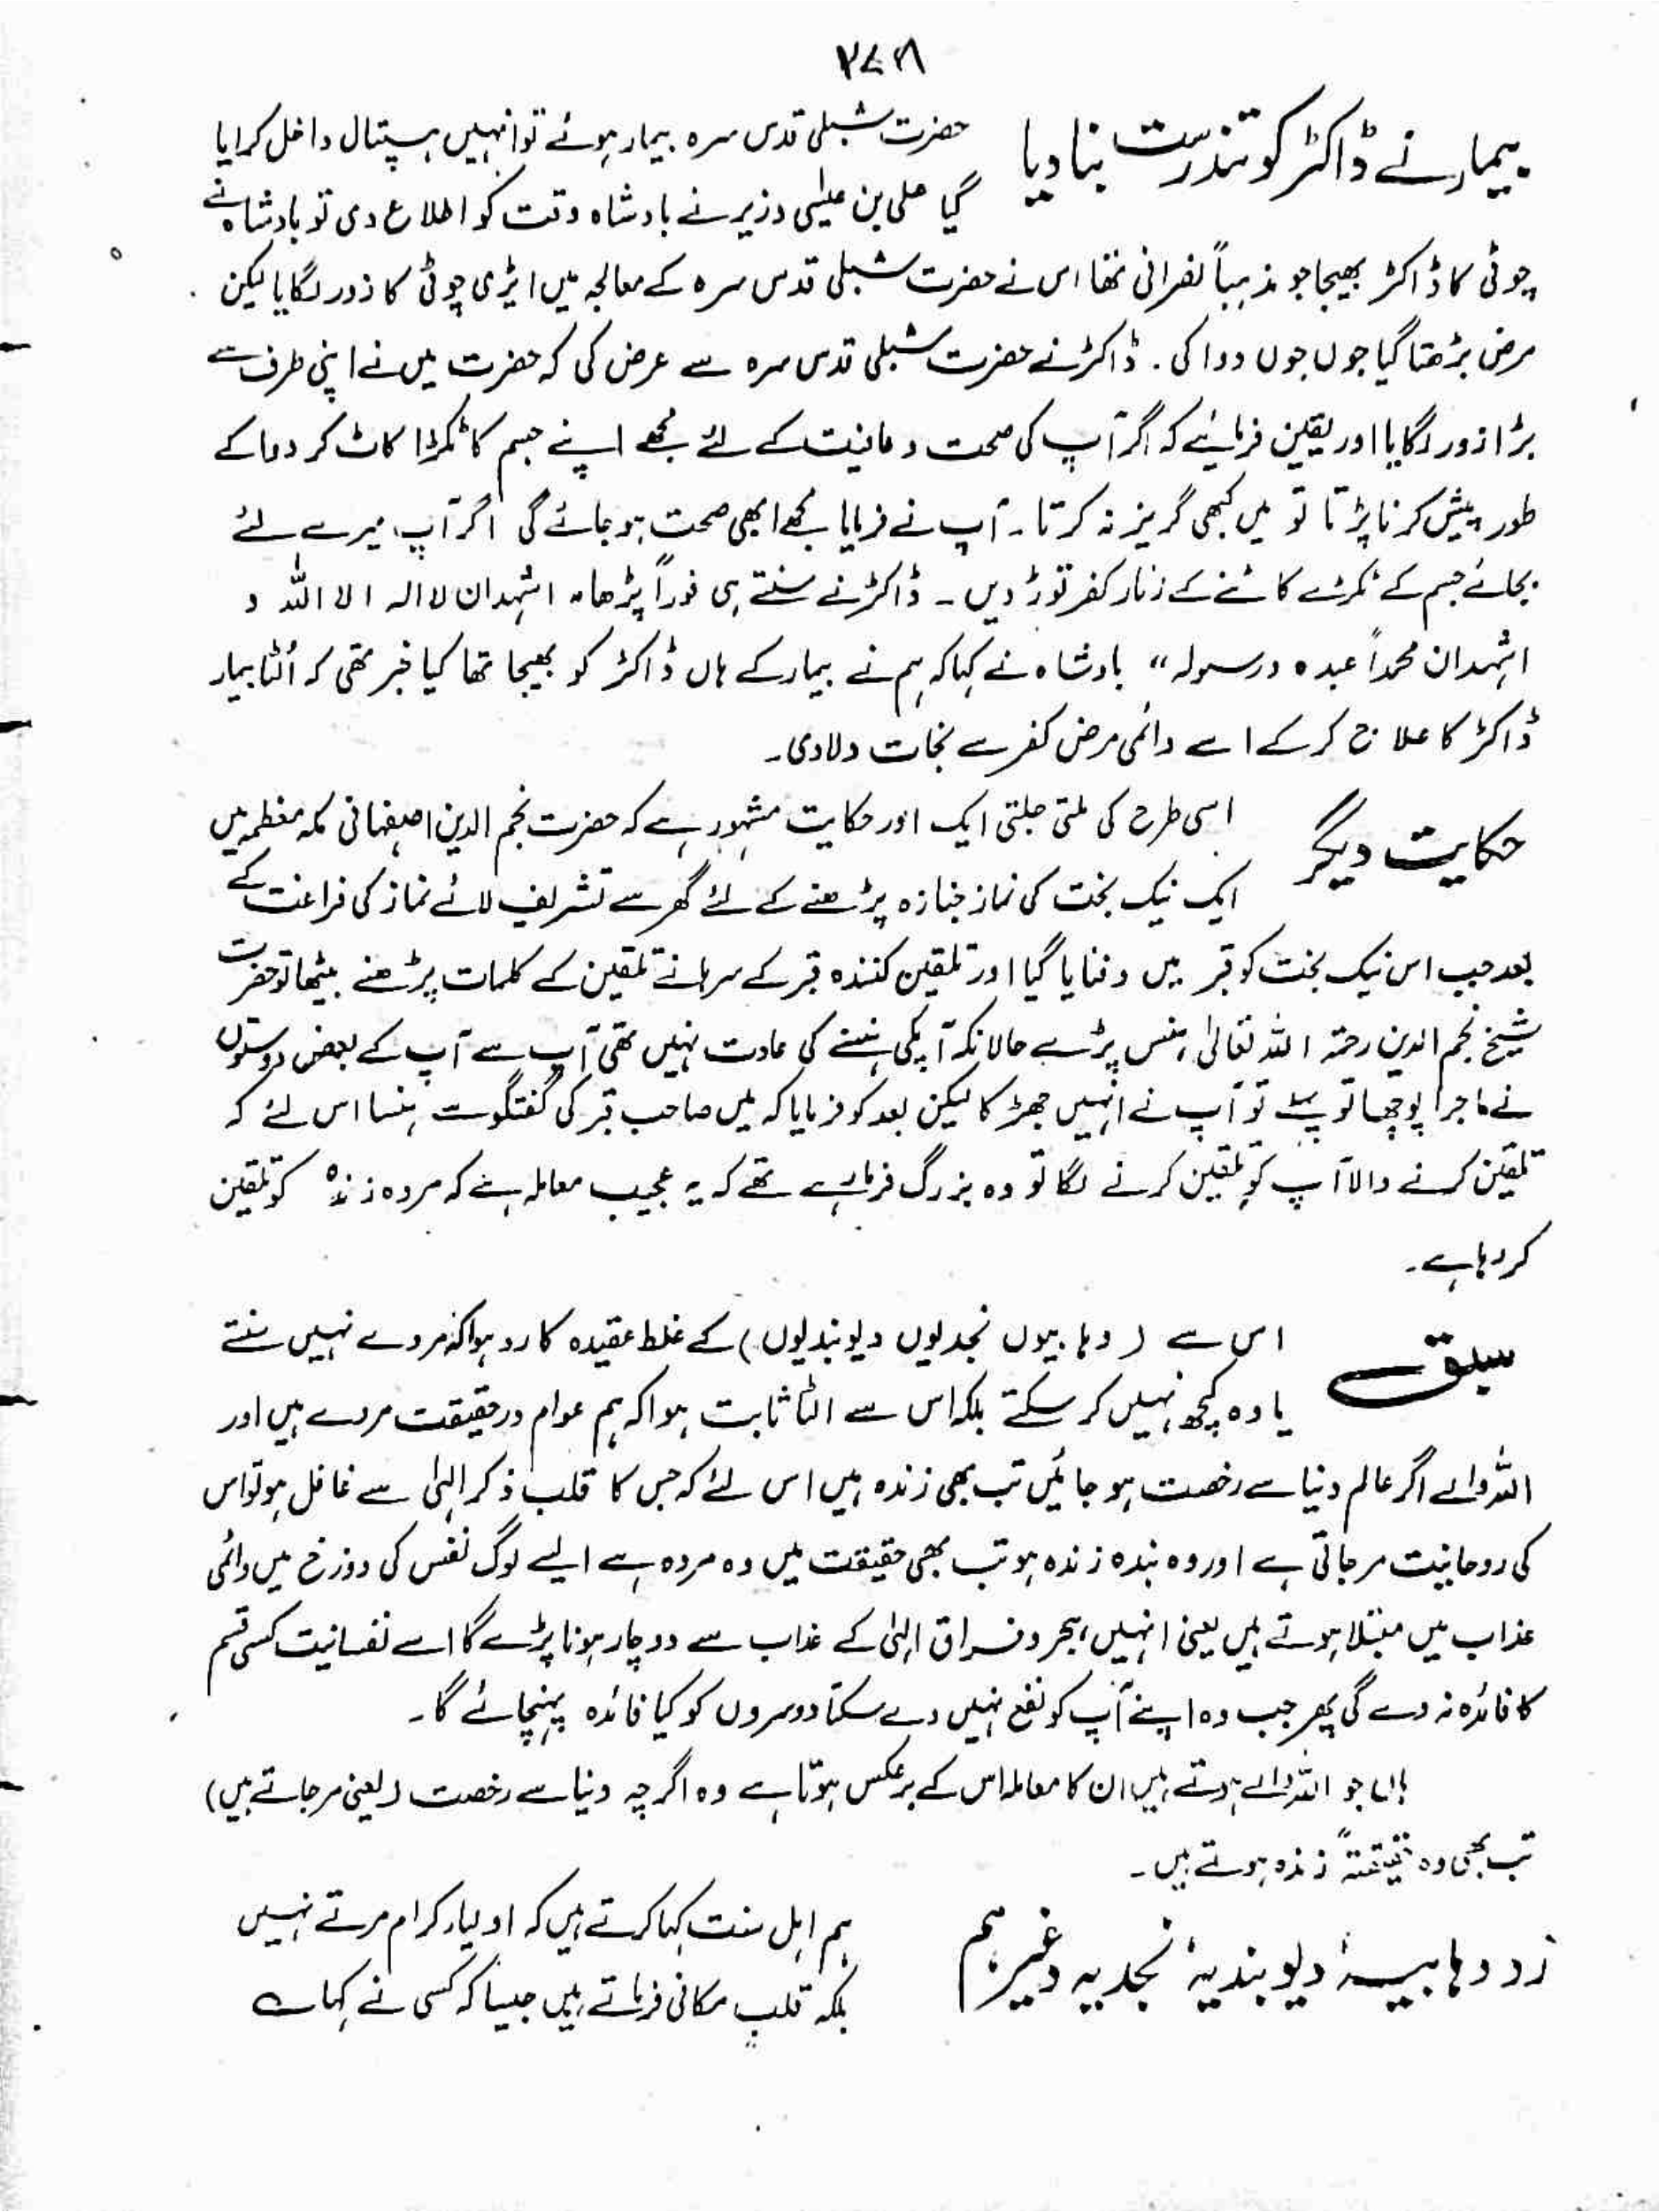 ۲۷۸
بیمار نے ڈاکٹر کو تندرست بنا دیا
حضرت شبلی قدس سرہ بیمار ہوئے تو انہیں ہسپتال داخل کرایا
گیا علی بن عیسٰی وزیر نے بادشاہ وقت کو اطلاع دی تو بادشاہ نے
چوٹی کا ڈاکٹر بھیجا جو مذہباً نصرانی تھا اس نے حضرت شبلی قدس سرہ کے معالجہ میں ایڑی چوٹی کا زور لگایا لیکن
مرض بڑھتا گیا جوں جوں دوا کی ۔ ڈاکٹر نے حضرت شبلی قدس سرہ سے عرض کی کہ حضرت میں نے اپنی طرف سے
بڑا زور لگایا اور یقین فرمائیے کہ اگر آپ کی صحت و عافیت کے لئے مجھے اپنے جسم کا ٹکڑا کاٹ کر دوا کے
طور پیش کرنا پڑتا تو میں کبھی گریز نہ کرتا ۔ آپ نے فرمایا مجھے ابھی صحت ہو جائے گی اگر آپ میرے لئے
بجائے جسم کے ٹکڑے کاٹنے کے زنار کفر توڑ دیں ۔ ڈاکٹر نے سنتے ہی فوراً پڑھا " اشہدان لا الہ الا اللہ و
اشہدان محمداً عبدہ ورسولہ " بادشاہ نے کہا کہ ہم نے بیمار کے ہاں ڈاکٹر کو بھیجا تھا کیا خبر تھی کہ اُلٹا بیمار
ڈاکٹر کا علاج کر کے اسے دائمی مرض کفر سے نجات دلادی ۔
حکایت دیگر
اسی طرح کی ملتی جلتی ایک اور حکایت مشہور ہے کہ حضرت نجم الدین اصفہانی مکہ معظمہ میں
ایک نیک بخت کی نماز جنازہ پڑھنے کے لئے گھر سے تشریف لائے نماز کی فراغت کے
بعد جب اس نیک بخت کو قبر میں دفنایا گیا اور تلقین کنندہ قبر کے سرہانے تلقین کے کلمات پڑھنے بیٹھا تو حضرت
شیخ نجم الدین رحمتہ اللہ تعالٰی ہنس پڑے حالانکہ آپکی ہنسنے کی عادت نہیں تھی آپ سے آپ کے بعض دوستوں
نے ماجرا پوچھا تو پہلے تو آپ نے انہیں جھڑکا لیکن بعد کو فرمایا کہ میں صاحب قبر کی گفتگو سے ہنسا اس لئے کہ
تلقین کرنے والا آپ کو تلقین کرنے لگا تو وہ بزرگ فرما رہے تھے کہ یہ عجیب معاملہ ہے کہ مردہ زندہ کو تلقین
کر رہا ہے ۔
سبق
اس سے ( وہابیوں نجدیوں دیوبندیوں ) کے غلط عقیدہ کا رد ہوا کہ مردے نہیں سنتے
یا وہ کچھ نہیں کر سکتے بلکہ اس سے الٹا ثابت ہوا کہ ہم عوام درحقیقت مردے ہیں اور
اللہ والے اگر عالم دنیا سے رخصت ہو جائیں تب بھی زندہ ہیں اس لئے کہ جس کا قلب ذکر الہٰی سے غافل ہو تو اس
کی روحانیت مر جاتی ہے اور وہ بندہ زندہ ہو تب بھی حقیقت میں وہ مردہ ہے ایسے لوگ نفس کی دوزخ میں دائمی
عذاب میں مبتلا ہوتے ہیں یعنی انہیں ہجر و فراق الہٰی کے عذاب سے دوچار ہونا پڑے گا اسے نفسانیت کسی قسم
کا فائدہ نہ دے گی پھر جب وہ اپنے آپ کو نفع نہیں دے سکتا دوسروں کو کیا فائدہ پہنچائے گا ۔
ہاں جو اللہ والے ہوتے ہیں ان کا معاملہ اس کے برعکس ہوتا ہے وہ اگرچہ دنیا سے رخصت ( یعنی مر جاتے ہیں )
تب بھی وہ حقیقتہً زندہ ہوتے ہیں ۔
رد وہابیہ دیوبندیہ نجدیہ وغیرہم
ہم اہل سنت کہا کرتے ہیں کہ اولیاء کرام مرتے نہیں
بلکہ قلب مکانی فرماتے ہیں جیسا کہ کسی نے کہا ؎